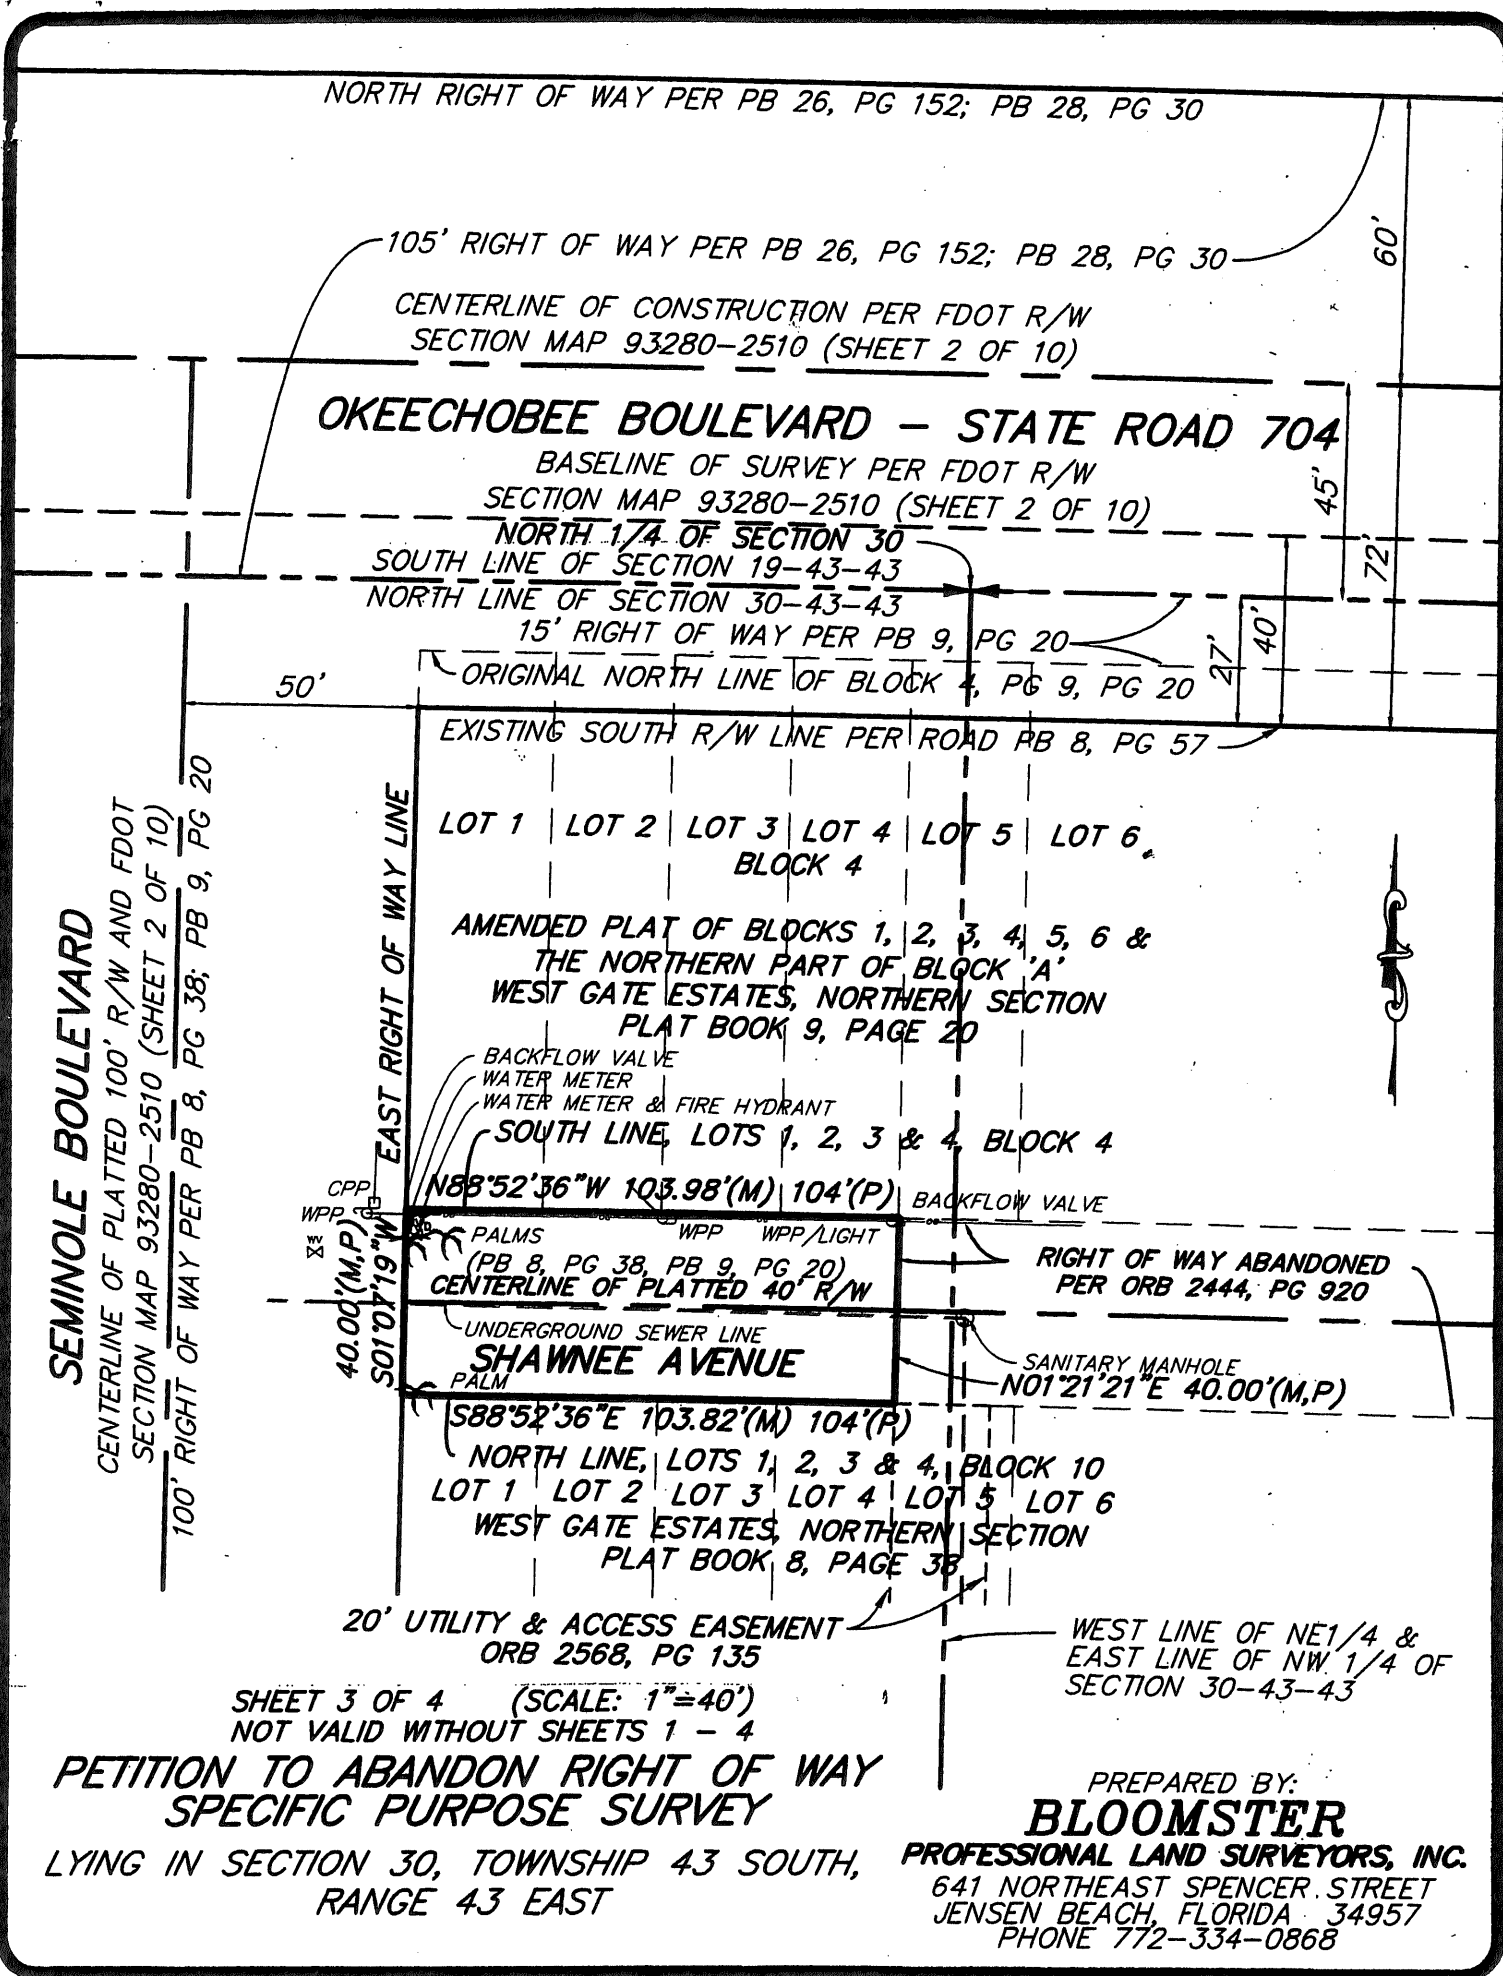 NORTH RIGHT OF WAY PER PB 26, PG 152; PB 28, PG 30
105' RIGHT OF WAY PER PB 26, PG 152; PB 28, PG 30
60'
CENTERLINE OF CONSTRUCTION PER FDOT R/W
SECTION MAP 93280-2510 (SHEET 2 OF 10)
OKEECHOBEE BOULEVARD - STATE ROAD 704
BASELINE OF SURVEY PER FDOT R/W
SECTION MAP 93280-2510 (SHEET 2 OF 10)
45'
72'
NORTH 1/4 OF SECTION 30
SOUTH LINE OF SECTION 19-43-43
NORTH LINE OF SECTION 30-43-43
15' RIGHT OF WAY PER PB 9, PG 20
27'
40'
ORIGINAL NORTH LINE OF BLOCK 4, PG 9, PG 20
50'
EXISTING SOUTH R/W LINE PER ROAD PB 8, PG 57
SEMINOLE BOULEVARD
CENTERLINE OF PLATTED 100' R/W AND FDOT
SECTION MAP 93280-2510 (SHEET 2 OF 10)
100' RIGHT OF WAY PER PB 8, PG 38; PB 9, PG 20
EAST RIGHT OF WAY LINE
LOT 1 LOT 2 LOT 3 LOT 4 LOT 5 LOT 6
BLOCK 4
AMENDED PLAT OF BLOCKS 1, 2, 3, 4, 5, 6 &
THE NORTHERN PART OF BLOCK 'A'
WEST GATE ESTATES, NORTHERN SECTION
PLAT BOOK 9, PAGE 20
BACKFLOW VALVE
WATER METER
WATER METER & FIRE HYDRANT
SOUTH LINE, LOTS 1, 2, 3 & 4, BLOCK 4
N88°52'36"W 103.98'(M) 104'(P)
BACKFLOW VALVE
CPP
WPP
WV
40.00'(M,P)
S01°07'19"W
PALMS
WPP
WPP/LIGHT
(PB 8, PG 38, PB 9, PG 20)
CENTERLINE OF PLATTED 40' R/W
RIGHT OF WAY ABANDONED
PER ORB 2444, PG 920
UNDERGROUND SEWER LINE
SHAWNEE AVENUE
SANITARY MANHOLE
N01°21'21"E 40.00'(M,P)
PALM
S88°52'36"E 103.82'(M) 104'(P)
NORTH LINE, LOTS 1, 2, 3 & 4, BLOCK 10
LOT 1 LOT 2 LOT 3 LOT 4 LOT 5 LOT 6
WEST GATE ESTATES, NORTHERN SECTION
PLAT BOOK 8, PAGE 38
20' UTILITY & ACCESS EASEMENT
ORB 2568, PG 135
WEST LINE OF NE1/4 &
EAST LINE OF NW 1/4 OF
SECTION 30-43-43
SHEET 3 OF 4 (SCALE: 1"=40')
NOT VALID WITHOUT SHEETS 1 - 4
PETITION TO ABANDON RIGHT OF WAY
SPECIFIC PURPOSE SURVEY
LYING IN SECTION 30, TOWNSHIP 43 SOUTH,
RANGE 43 EAST
PREPARED BY:
BLOOMSTER
PROFESSIONAL LAND SURVEYORS, INC.
641 NORTHEAST SPENCER STREET
JENSEN BEACH, FLORIDA 34957
PHONE 772-334-0868